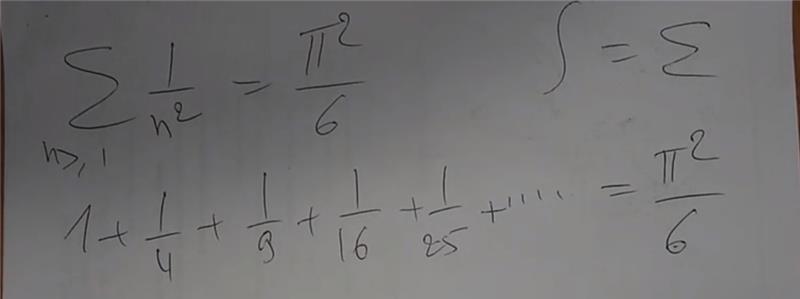 ∑ 1/n² = π²/6   ∫ = ∑
n≥1
1 + 1/4 + 1/9 + 1/16 + 1/25 + ..... = π²/6